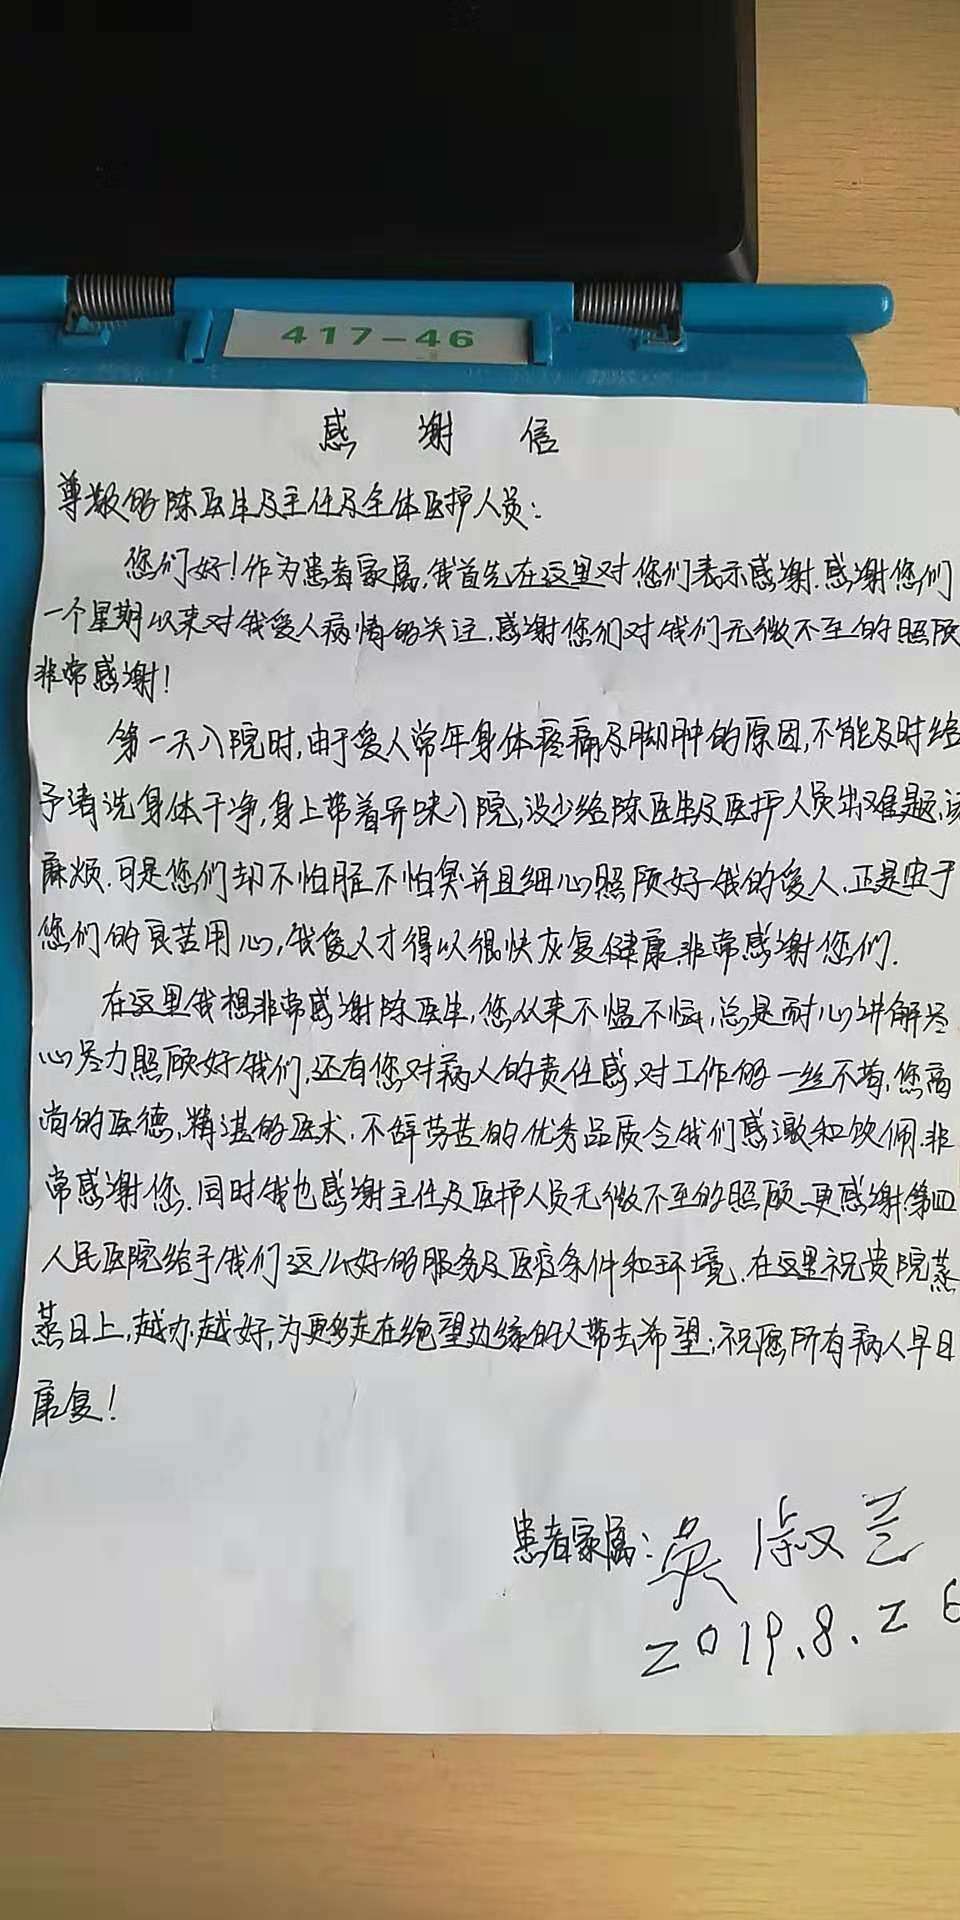 417-46
感谢信
尊敬的陈医生及主任及全体医护人员:
您们好!作为患者家属,我首先在这里对您们表示感谢.感谢您们
一个星期以来对我爱人病情的关注.感谢您们对我们无微不至的照顾
非常感谢!
第一天入院时,由于爱人常年身体疼痛及脚肿的原因,不能及时给
予清洗身体干净,身上带着异味入院,没少给陈医生及医护人员出难题,
麻烦.可是您们却不怕脏不怕臭并且细心照顾好我的爱人.正是由于
您们的良苦用心,我爱人才得以很快恢复健康.非常感谢您们.
在这里我想非常感谢陈医生,您从来不愠不恼,总是耐心讲解尽
心尽力照顾好我们,还有您对病人的责任感,对工作的一丝不苟,您高
尚的医德,精湛的医术,不辞劳苦的优秀品质令我们感激和钦佩.非
常感谢您.同时我也感谢主任及医护人员无微不至的照顾.更感谢第四
人民医院给于我们这么好的服务及医疗条件和环境.在这里祝贵院蒸
蒸日上,越办越好,为更多走在绝望边缘的人带去希望;祝愿所有病人早日
康复!
患者家属:吴淑兰
2019.8.26